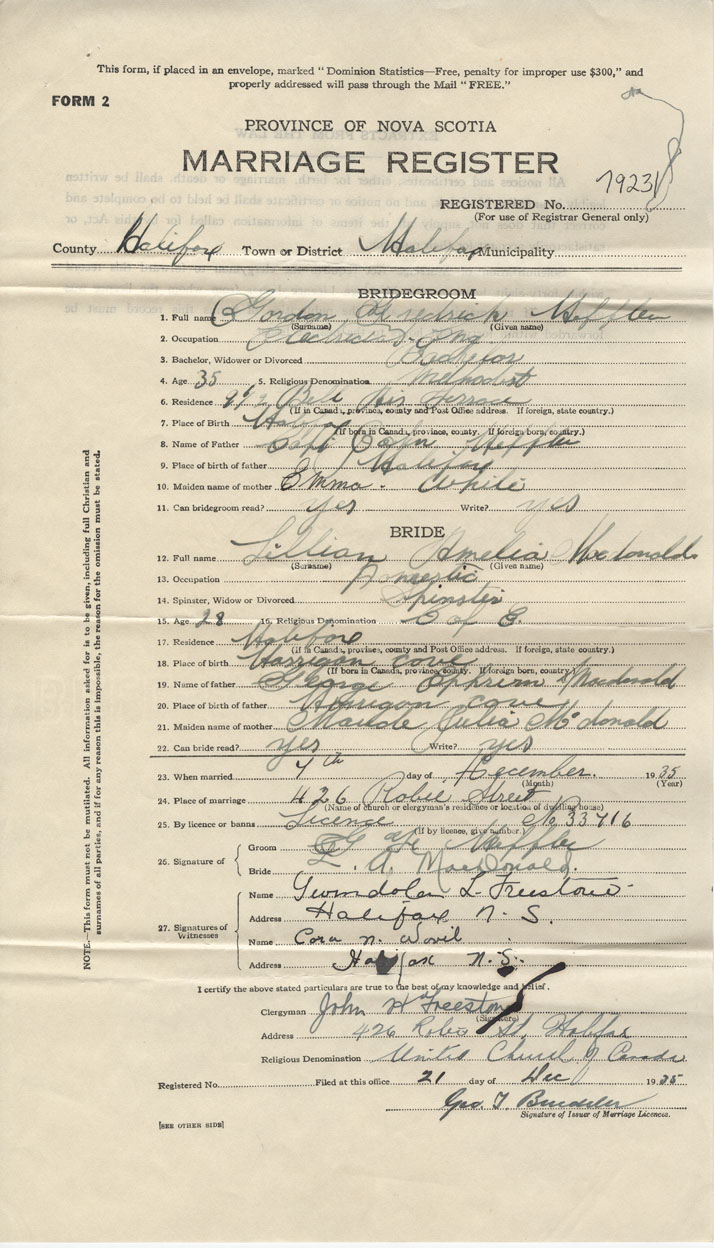 This form, if placed in an envelope, marked "Dominion Statistics—Free, penalty for improper use $300," and
properly addressed will pass through the Mail "FREE."
FORM 2
PROVINCE OF NOVA SCOTIA
MARRIAGE REGISTER
REGISTERED No. 1923
(For use of Registrar General only)
County Halifax Town or District Halifax Municipality
BRIDEGROOM
1. Full name Gordon Fredrick Heffler
(Surname) (Given name)
2. Occupation Electrical Eng.
3. Bachelor, Widower or Divorced Bachelor
4. Age 35 5. Religious Denomination Methodist
6. Residence Bell Air Terrace
(If in Canada, province, county and Post Office address. If foreign, state country.)
7. Place of Birth Halifax
(If born in Canada, province, county. If foreign born, country.)
8. Name of Father Capt Heffler
9. Place of birth of father Halifax
10. Maiden name of mother Emma White
11. Can bridegroom read? yes Write? yes
BRIDE
12. Full name Lillian Amelia Macdonald
(Surname) (Given name)
13. Occupation Domestic
14. Spinster, Widow or Divorced Spinster
15. Age 28 16. Religious Denomination C of E.
17. Residence Halifax
(If in Canada, province, county and Post Office address. If foreign, state country.)
18. Place of birth Harrigan cove
(If born in Canada, province, county. If foreign born, country.)
19. Name of father George Ephriem Macdonald
20. Place of birth of father Harrigan cove
21. Maiden name of mother Maude Julia McDonald
22. Can bride read? yes Write? yes
23. When married 7th day of December. 1935
(Month) (Year)
24. Place of marriage 426 Robie Street
(Name of church or clergyman's residence or location of dwelling house)
25. By licence or banns Licence No 33716
(If by licence, give number)
26. Signature of
Groom G F Heffler
Bride L. A. MacDonald.
27. Signatures of Witnesses
Name Gwendolen L. Freestone
Address Halifax N. S.
Name Cora N.
Address Halifax N.S.
I certify the above stated particulars are true to the best of my knowledge and belief.
Clergyman John H Freestone
(Signature)
Address 426 Robie St. Halifax
Religious Denomination United Church of Canada
Registered No. Filed at this office 21 day of Dec 1935
Geo. T.
Signature of Issuer of Marriage Licences.
[SEE OTHER SIDE]
NOTE.—This form must not be mutilated. All information asked for is to be given, including full Christian and
surnames of all parties, and if for any reason this is impossible, the reason for the omission must be stated.